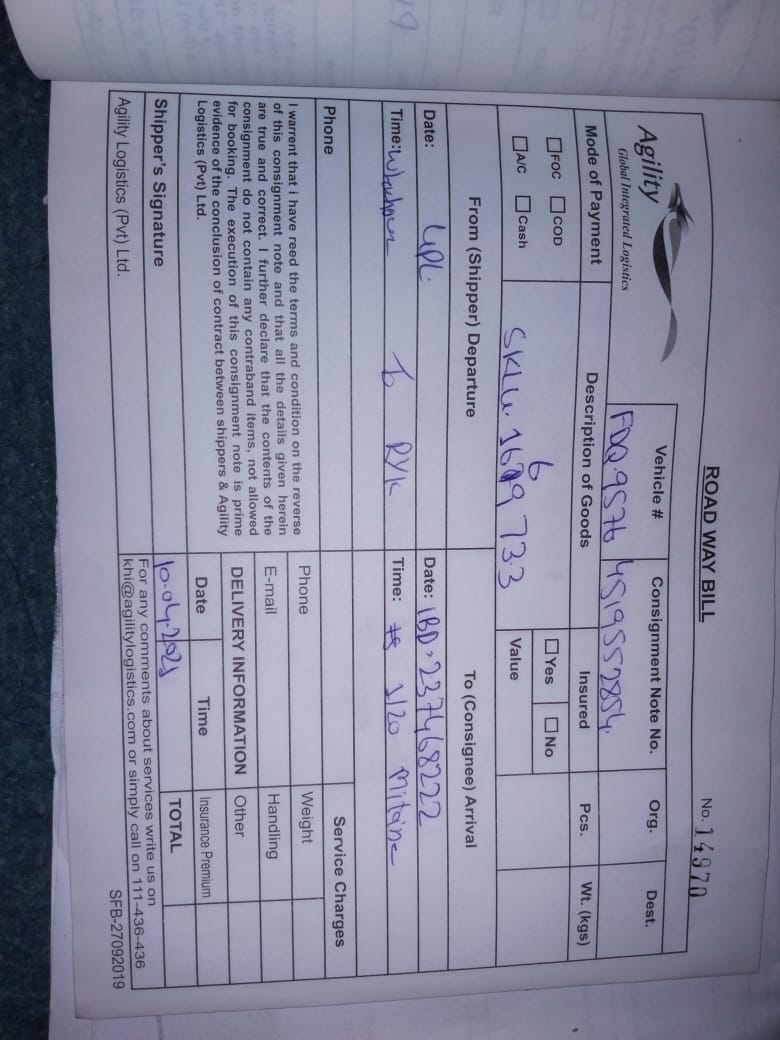 ROAD WAY BILL
No. 14970
Agility
Global Integrated Logistics
Vehicle # Consignment Note No. Org. Dest.
FDQ.9576 4519552854.
Mode of Payment Description of Goods Insured Pcs. Wt. (kgs)
FOC COD Yes No
6
A/C Cash SKLU. 1679 733 Value
From (Shipper) Departure To (Consignee) Arrival
Date: UPL. Date: IBD. 237468222
Time: To RYK Time: 1/20
Phone
Service Charges
I warrent that i have reed the terms and condition on the reverse
of this consignment note and that all the details given herein
are true and correct. I further declare that the contents of the
consignment do not contain any contraband items, not allowed
for booking. The execution of this consignment note is prime
evidence of the conclusion of contract between shippers & Agility
Logistics (Pvt) Ltd.
Phone Weight
E-mail Handling
DELIVERY INFORMATION Other
Date Time Insurance Premium
10.04.2021 TOTAL
Shipper's Signature
For any comments about services write us on
khi@agilitylogistics.com or simply call on 111-436-436
Agility Logistics (Pvt) Ltd.
SFB-27092019